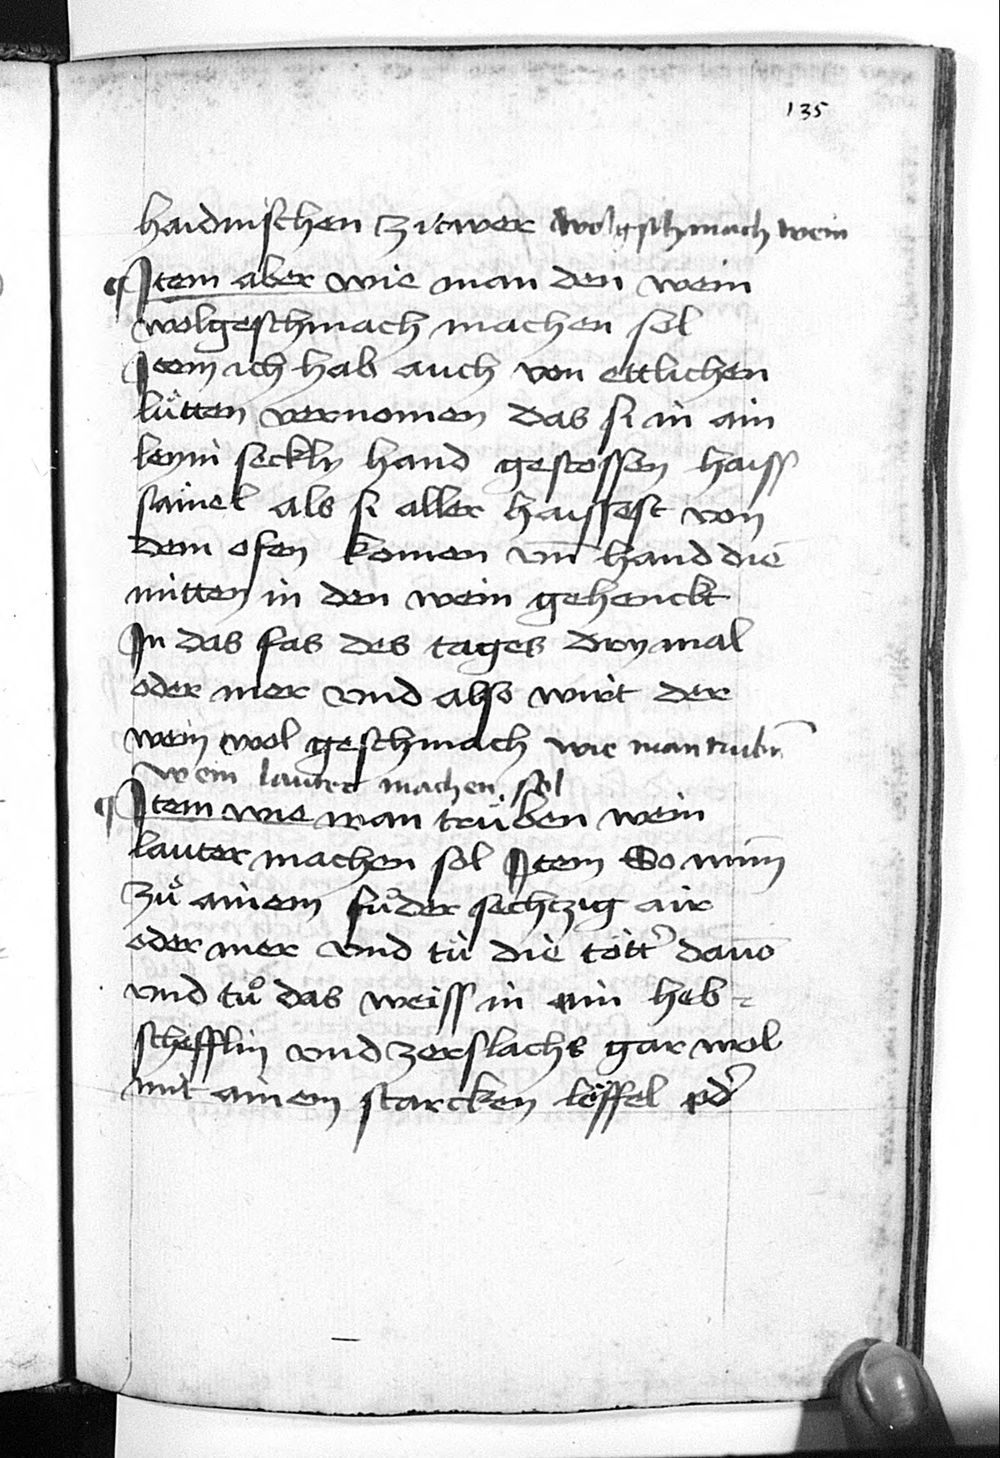 135
haidnischen zitwer wolgschmach wein
¶ Item aber wie man den wein
wolgeschmach machen sol
Item ich hab auch von ettlichen
lütten vernomen das si in ain
leynin seckly hand gestossen haiss
stainel als si aller haissest von
dem ofen komen vn̄ hand die
mitten in den wein gehenckt
In das fas des tages drymal
oder mer vnd also wirt der
wein wol geschmach wie man trubn̄
wein lautter machen sol
¶ Item wie man trüben wein
lauter machen sol Item So nim̄
zů ainem fůder sechtzig air
oder mer vnd tů die tött͛ dauō
vnd tů das weiss in ain heb-
schefflin vnd zerslachs gar wol
mit ainem starcken löffel od͛